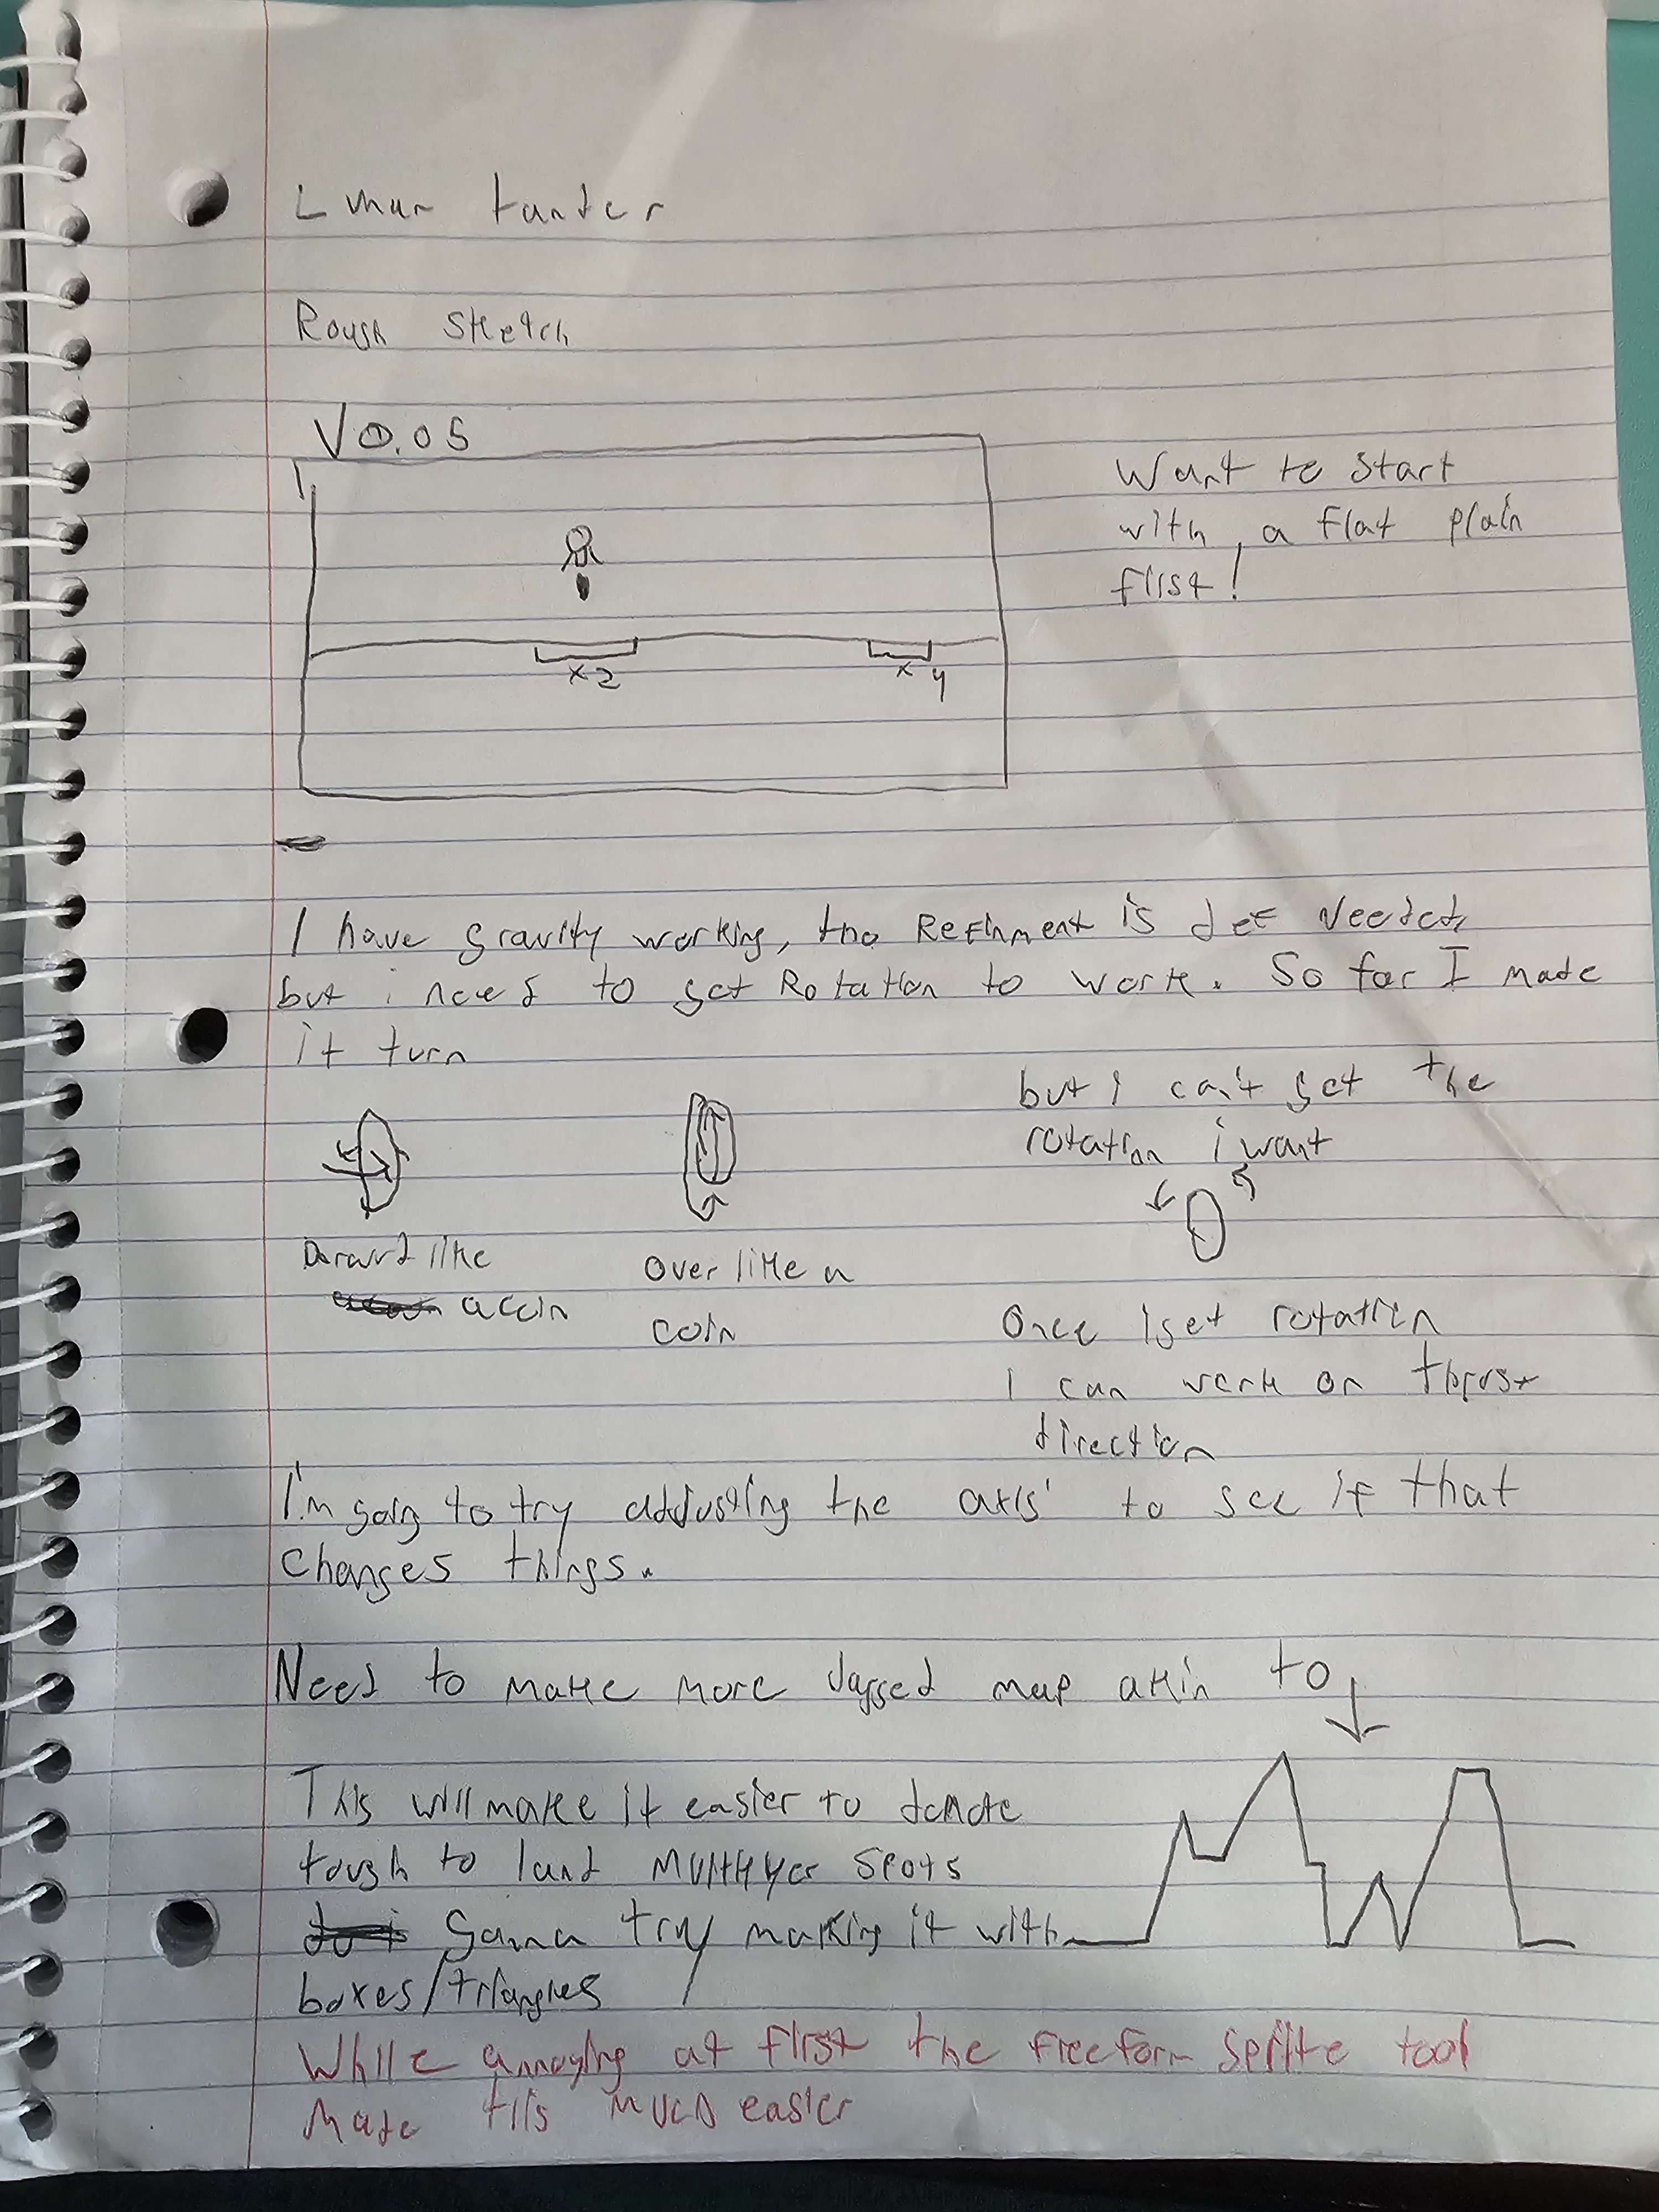 Lunar Lander
Rough sketch
V0.05
Want to start
with a flat plain
first!
x2
x4
I have gravity working, tho Refinment is def Needed,
but i need to get Rotation to work. So far I made
it turn
but I can't get the
rotation i want
Around like
a coin
Over like a
coin
Once I get rotation
I can work on thrust
direction
I'm going to try adjusting the axis' to see if that
changes things.
Need to make more Jagged map akin to
This will make it easier to denote
tough to land multiplyer spots
Gonna try making it with
boxes/triangles
While annoying at first the freeform sprite tool
Made this much easier